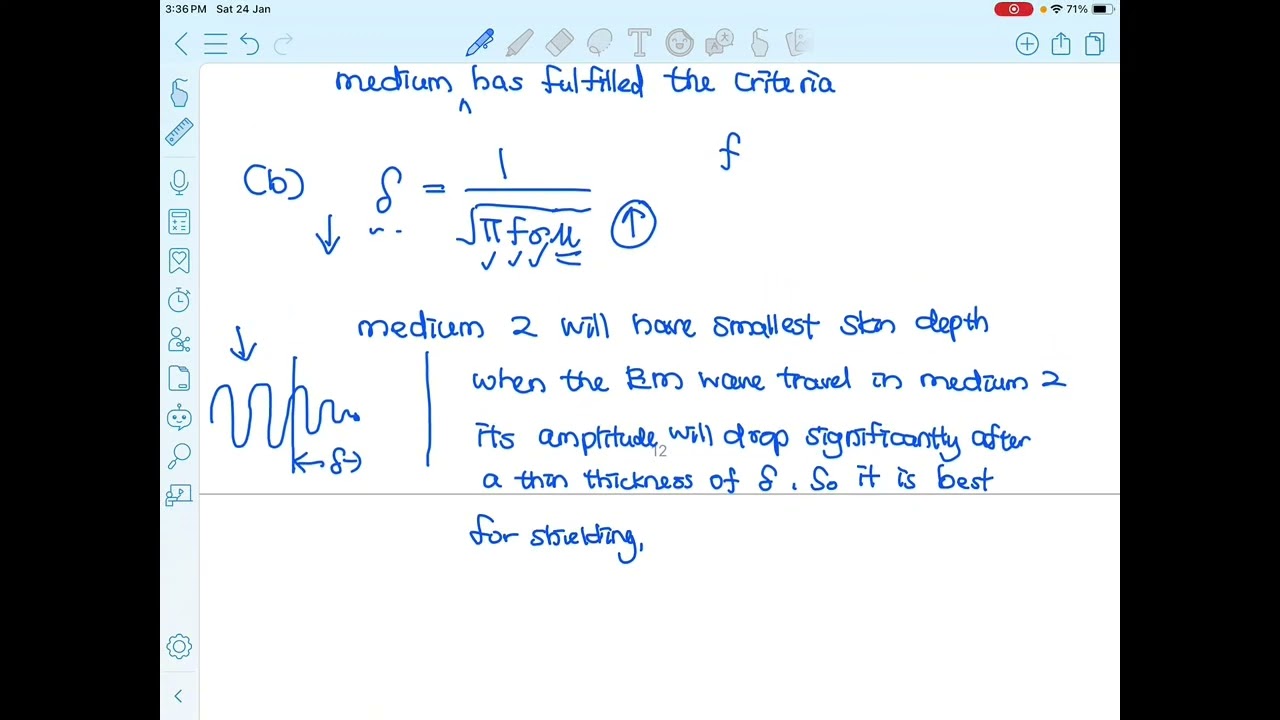 3:36 PM Sat 24 Jan
71%
medium ^ has fulfilled the criteria
f
(b) δ = 1 / √πfσμ ↑
↓
medium 2 will have smallest skin depth
when the EM wave travel in medium 2
its amplitude will drop significantly after
12
a thin thickness of δ. So it is best
for shielding,
↓
←δ→